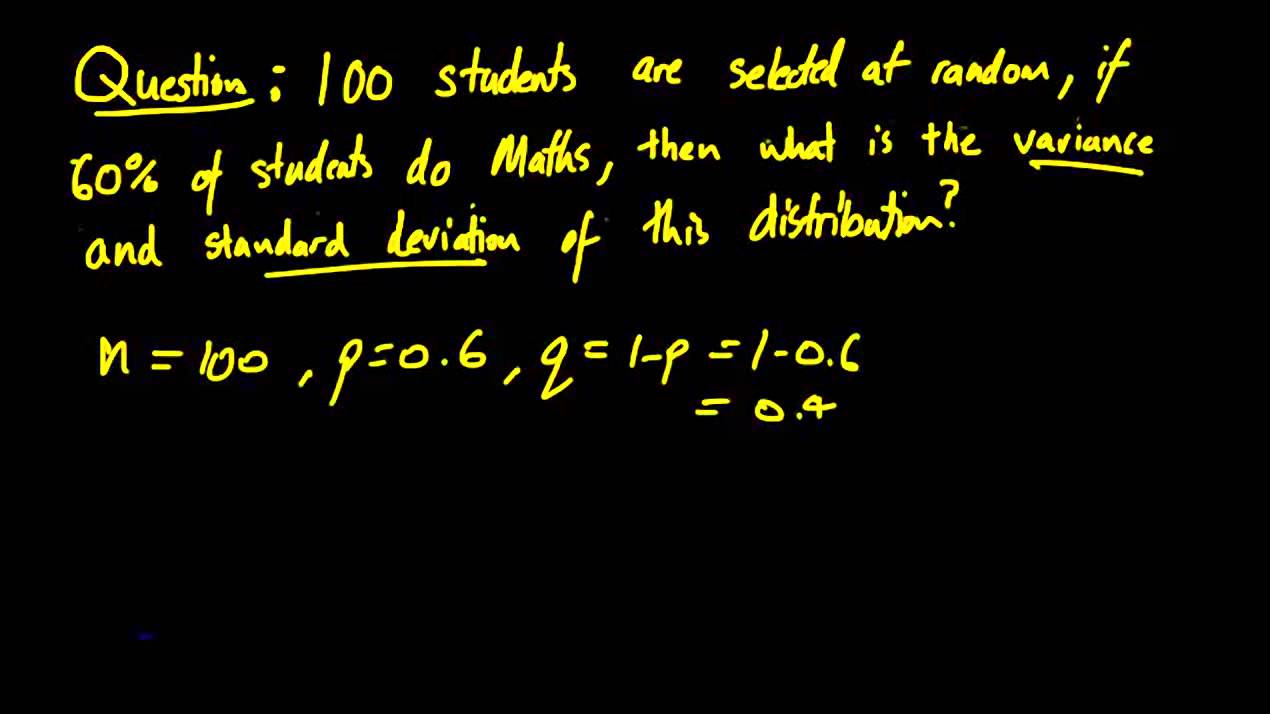 Question: 100 students are selected at random, if
60% of students do Maths, then what is the variance
and standard deviation of this distribution?
n = 100, p=0.6, q = 1-p = 1-0.6
= 0.4